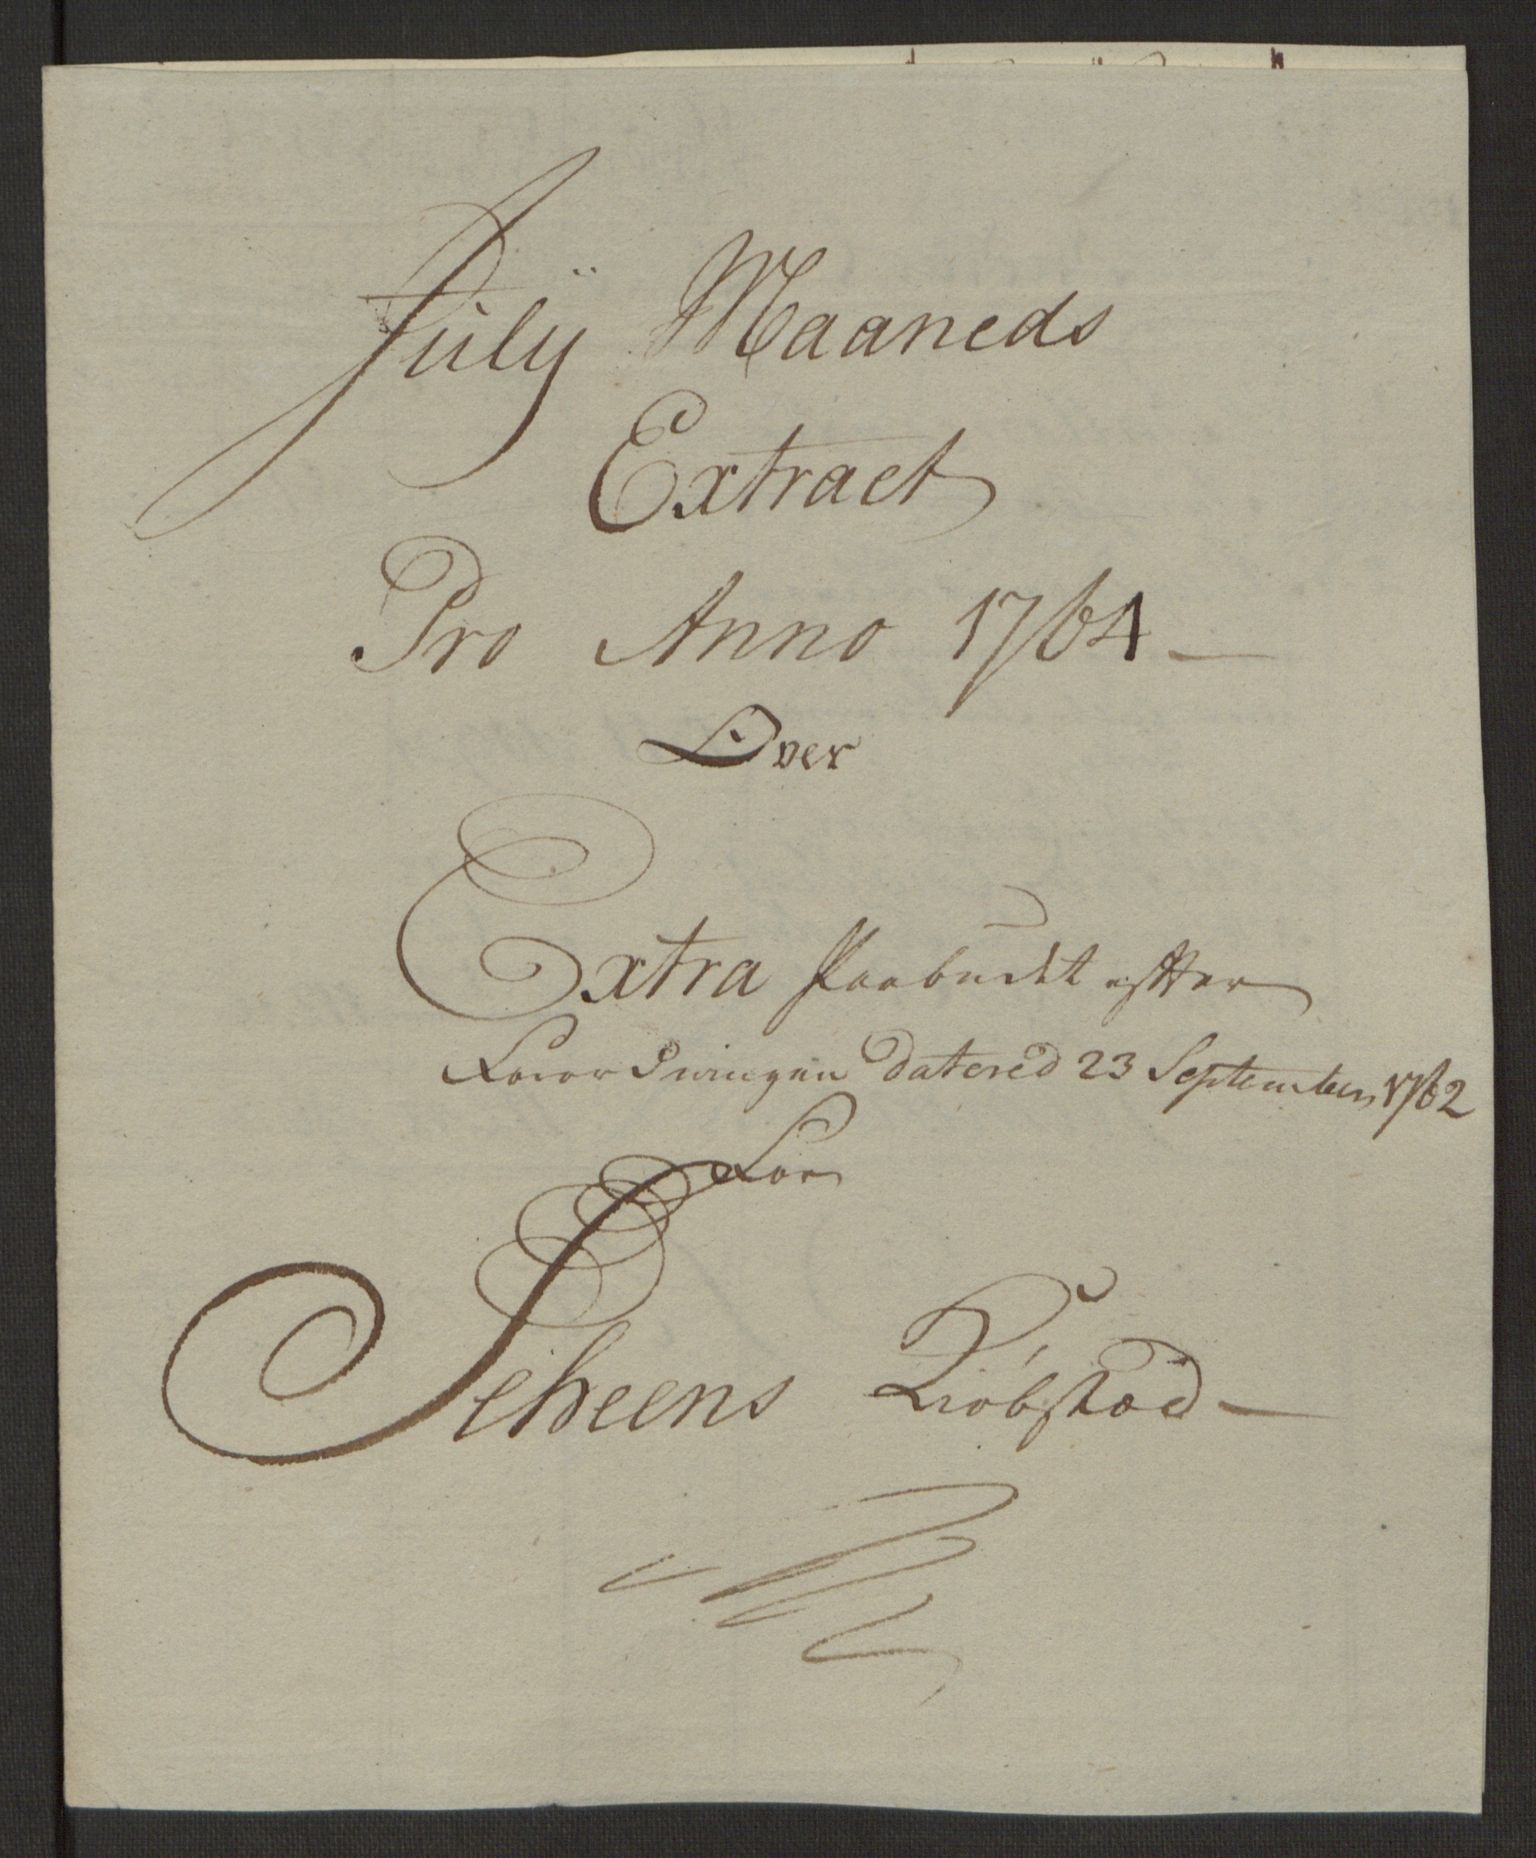 Julÿ Maaneds
Extract
Pro Anno 1764 –
Over
Extra Paabudt efter
Forordningen Datered 23 September 1762
For
Scheens Kiøbstæd –